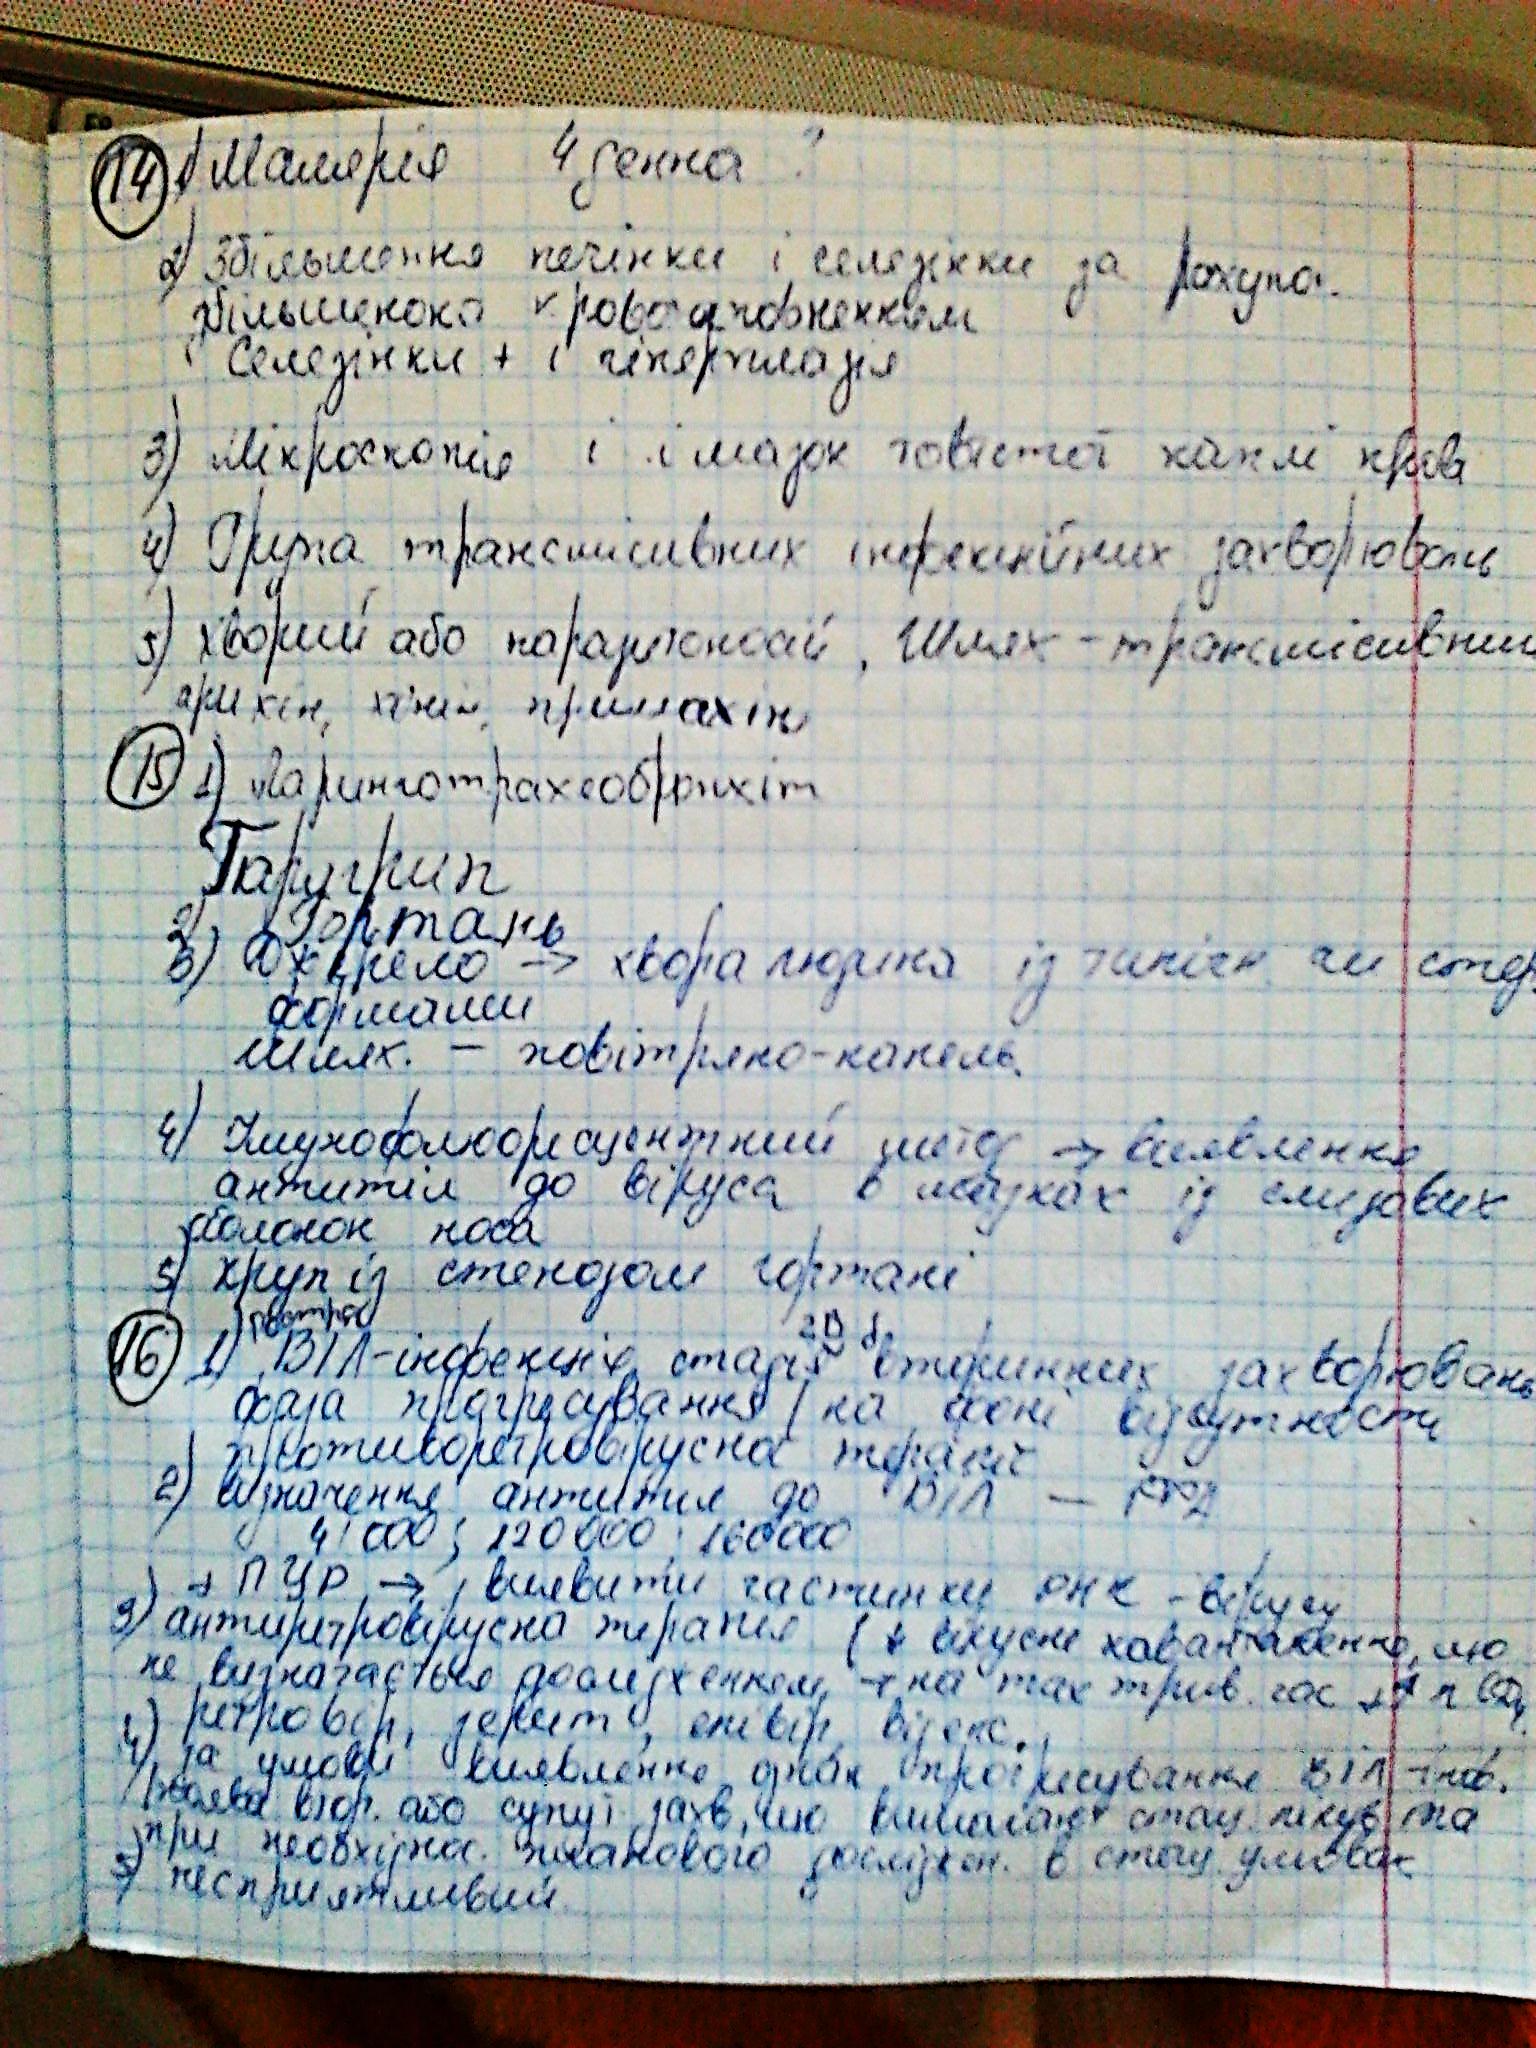 14 1) Малярія 4 денна ?
2) Збільшення печінки і селезінки за рахуно.
збільшеного кровонаповненням
селезінки + і гіперплазія
3) Мікроскопія і мазок товстої каплі крові
4) Група трансмісивних інфекційних захворювань
5) хворий або паразитоносій, Шлях - трансмісивний
хінін, примахін
15 1) Ларинготрахеобронхіт
Парагрип
2) Гортань
3) Джерело → хвора людина із типічн. чи стер.
формами
Шлях. - повітряно-капель.
4) Імунофлюоресцентний метод → виявлення
антитіл до віруса в мазках із слизових
оболонок носа
5) круп із стенозом гортані
16 1) ВІЛ-інфекція, стадія вторинних захворювань
фаза прогресування / на фоні відсутності
противоретровірусної терапії
2) визначення антитіл до ВІЛ -
41 000; 120 000; 160000
+ ПЦР → виявити частинки РНК - вірусу
3) антиретровірусна терапія (↓ вірусне навантаження, що
не визначається дослідженням, + на трив. час
ретровір, зерит, епівір, відекс.
4) за умови виявлення ознак прогресування ВІЛ-інф.
поява втор. або супут. захв, що вимагають стац. лікув. та
при необхідно. планового досліджен. в стац. умовах
5) несприятливий